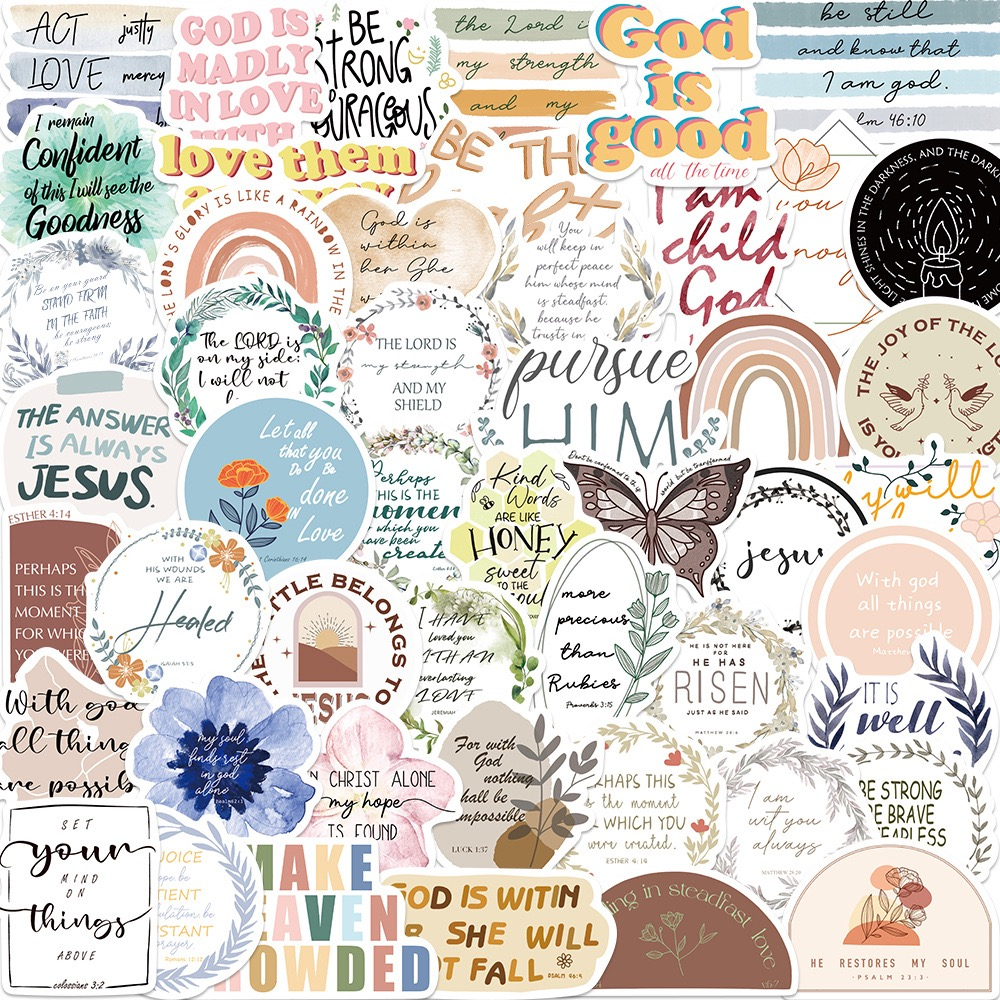 ACT justly
LOVE mercy
GOD IS
MADLY
IN LOVE
WITH
BE
STRONG
COURAGEOUS
the Lord is
my strength
and my
God
is
good
all the time
be still
and know that
I am god.
lm 46:10
I remain
Confident
of this I will see the
Goodness
love them
BE TH
I am
child
God
you
now
LIGHT SHINES IN THE DARKNESS, AND THE DARK
THE LORD'S GLORY IS LIKE A RAINBOW IN THE
God is
within
her She
w
You
will keep in
perfect peace
him whose mind
is steadfast,
because he
trusts in
Be on your guard
STAND FIRM
IN THE FAITH
be courageous
be strong
The LORD is
on my side:
I will not
THE LORD IS
my strength
AND MY
SHIELD
pursue
HIM
THE JOY OF THE L
IS YO
THE ANSWER
IS ALWAYS
JESUS.
Let all
that you
Do Be
done
IN
Love
1 Corinthians 16:14
Perhaps
THIS IS THE
moment
for which you
have been
created
Kind
Words
ARE LIKE
HONEY
sweet
TO THE
soul
Don't be conformed to this world but be transformed
jesus
y will
ESTHER 4:14
PERHAPS
THIS IS TH
MOMENT
FOR WHIC
YOU WERE
WITH
HIS WOUNDS
WE ARE
Healed
ISAIAH 53:5
THE BATTLE BELONGS TO
JESUS
I HAVE
loved you
WITH AN
everlasting
LOVE
JEREMIAH
more
precious
than
Rubies
Proverbs 3:15
HE IS NOT HERE
FOR
HE HAS
RISEN
JUST AS HE SAID
MATTHEW 28:6
With god
all things
are possible
Matthew
IT IS
well
With god
all thing
are possib
my soul
finds rest
in god
alone
Psalm62:1
IN CHRIST ALONE
my hope
IS FOUND
For with
God
nothing
shall be
impossible
LUCK 1:37
RHAPS THIS
is the moment
R WHICH YOU
were created.
ESTHER 4:14
I am
wit you
always
MATTHEW 28:20
BE STRONG
BE BRAVE
FEARLESS
SET
your
MIND
ON
things
ABOVE
colossians 3:2
JOICE
hope be
TIENT
ulation, be
STANT
prayer
Romans 12:12
MAKE
EAVEN
OWDED
GOD IS WITIN
R SHE WILL
OT FALL
PSALM 46:5
ing in steadfast love
HE RESTORES MY SOUL
·PSALM 23:3·